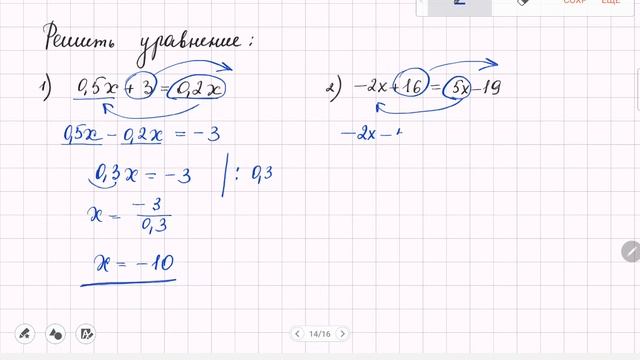 СОХР ЕЩЕ
Решить уравнение:
1) 0,5x + 3 = 0,2x
0,5x − 0,2x = −3
0,3x = −3 | : 0,3
x = −3/0,3
x = −10
2) −2x+16 = 5x−19
−2x −
14/16